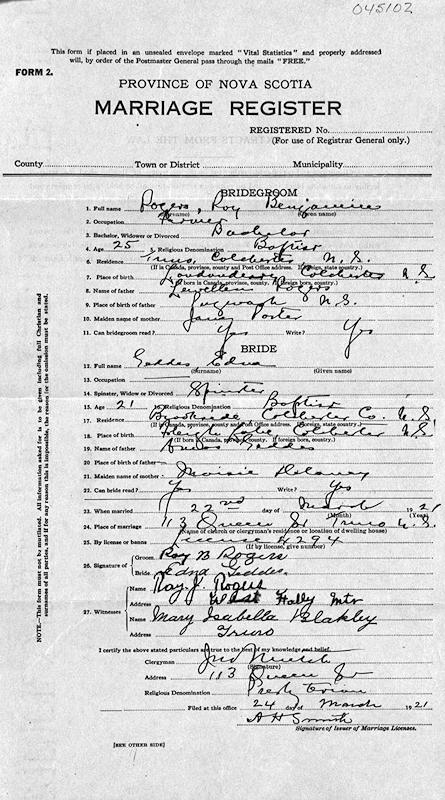 045102
This form if placed in an unsealed envelope marked "Vital Statistics" and properly addressed
will, by order of the Postmaster General pass through the mails "FREE."
FORM 2.
PROVINCE OF NOVA SCOTIA
MARRIAGE REGISTER
REGISTERED No.
(For use of Registrar General only.)
County Town or District Municipality
BRIDEGROOM
1. Full name Rogers, Roy Benjamin
(Surname) (Given name)
2. Occupation Farmer
3. Bachelor, Widower or Divorced Bachelor
4. Age 25 5. Religious Denomination Baptist
6. Residence Truro, Colchester N.S.
(If in Canada, province, county and Post Office address. If foreign, state country.)
7. Place of birth Londonderry Colchester N.S
(If born in Canada, province, county. If foreign born, country.)
8. Name of father Llewellyn Rogers
9. Place of birth of father Pugwash N.S.
10. Maiden name of mother Porter
11. Can bridegroom read? Yes Write? Yes
BRIDE
12. Full name Geddes Edna
(Surname) (Given name)
13. Occupation
14. Spinster, Widow or Divorced Spinster
15. Age 21 16. Religious Denomination Baptist
17. Residence Brookside Colchester Co. N.S
(If in Canada, province, county and Post Office address. If foreign, state country.)
18. Place of birth Colchester N.S.
(If born in Canada, province, county. If foreign born, country.)
19. Name of father Geddes
20. Place of birth of father
21. Maiden name of mother Delaney
22. Can bride read? Yes Write? Yes
23. When married 22nd day of March 1921
(Month) (Year)
24. Place of marriage 113 Queen St Truro N.S.
(Name of church or clergyman's residence or location of dwelling house)
25. By license or banns License 4294
(If by license, give number)
26. Signature of Groom Roy B Rogers
Bride Edna Geddes
27. Witnesses Name Ray J. Rogers
Address West Mtn
Name Mary Isabella Blakley
Address Truro
I certify the above stated particulars are true to the best of my knowledge and belief.
Clergyman
(Signature)
Address 113 Queen St
Religious Denomination Presbyterian
Filed at this office 24 day of March 1921
A H Smith
Signature of Issuer of Marriage Licenses.
[SEE OTHER SIDE]
NOTE.—This form must not be mutilated. All information asked for is to be given including full Christian and
surnames of all parties, and if for any reason this is impossible, the reason for the omission must be stated.